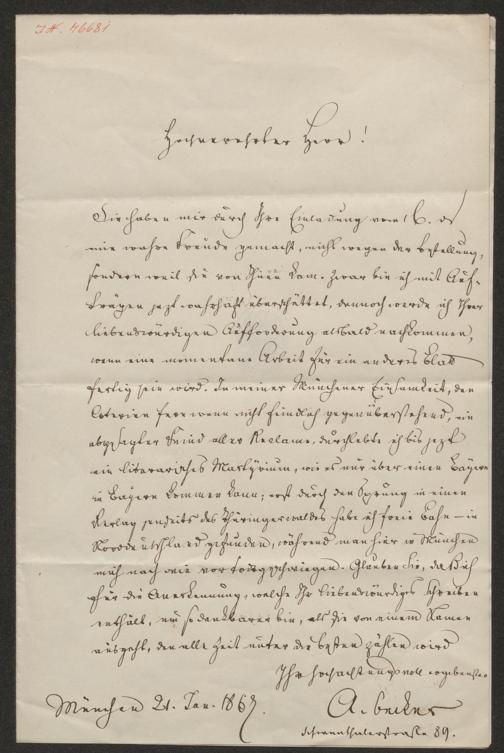 J.N. 76681
Hochverehrter Herr!
Sie haben mir durch Ihre Einladung vom 16. ds
eine wahre Freude gemacht, nicht wegen der Bestellung,
sondern weil sie von Ihnen kam. Zwar bin ich mit Auf-
trägen jezt wahrhaft überschüttet, dennoch werde ich Ihrer
liebenswürdigen Aufforderung alsbald nachkommen,
wenn eine momentane Arbeit für ein anderes Blatt
fertig sein wird. In meiner Münchener Einsamkeit, den
Coterien fern wenn nicht feindlich gegenüberstehend, ein
abgesagter Feind aller Reclame, durchlebte ich bis jezt
ein literarisches Martyrium, wie es nur über einen Bayern
in Bayern kommen kann; erst durch den Sprung in einen
Verlag jenseits des Thüringerwaldes habe ich freie Bahn – in
Norddeutschland gefunden, während man hier in München
mich nach wie vor todtgeschwiegen. Glauben Sie, daß ich
für die Anerkennung, welche Ihr liebenswürdiges Schreiben
enthält, um so dankbarer bin, als sie von einem Namen
ausgeht, den alle Zeit unter die besten zählen wird
Ihr hochachtungsvoll ergebenster
München 21. Jan. 1867.
A. Becker
Schwanthalerstraße 89.